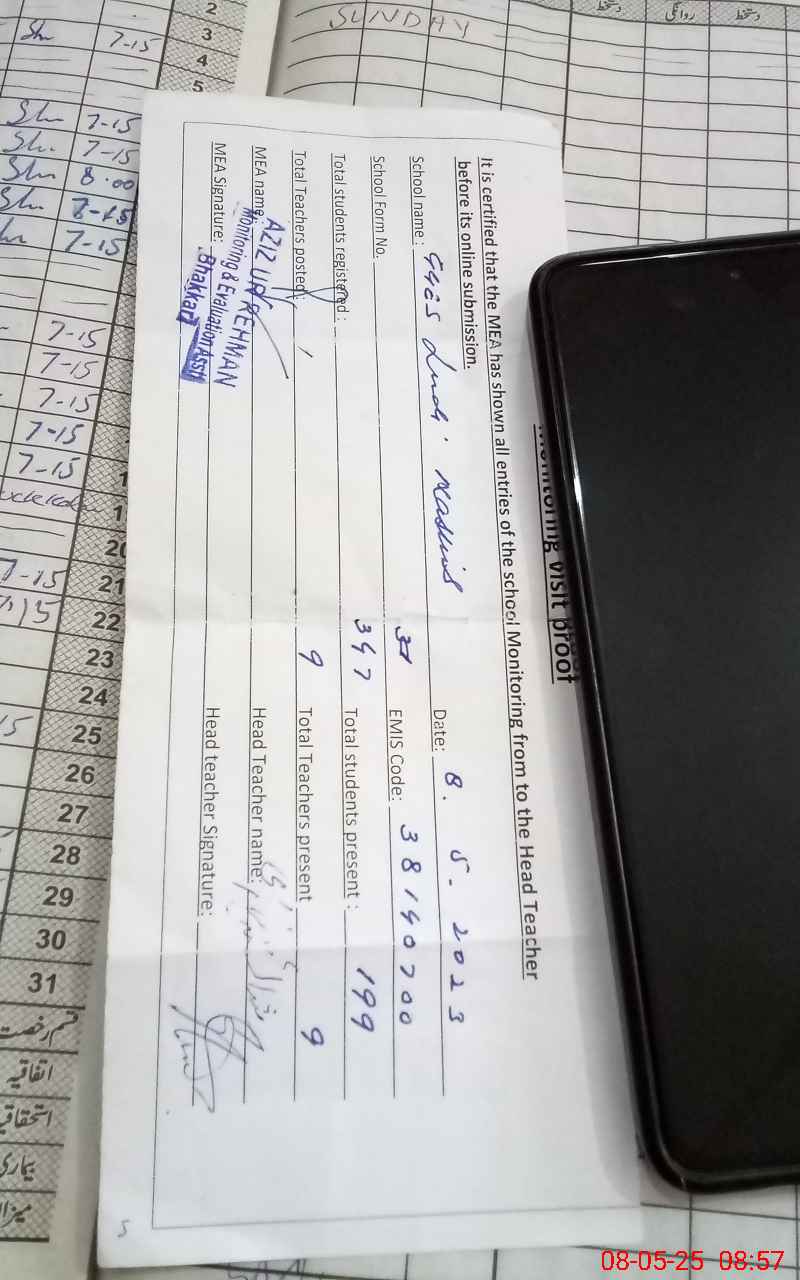 Monitoring visit proof
It is certified that the MEA has shown all entries of the school Monitoring from to the Head Teacher
before its online submission.
School name: Date: 8. 5. 2023
School Form No. 37 EMIS Code: 38140700
Total students registered: 347 Total students present: 199
Total Teachers posted: 9 Total Teachers present 9
MEA name: AZIZ UR REHMAN Head Teacher name:
Monitoring & Evaluation Asstt
MEA Signature: Bhakkar Head teacher Signature:
5
SUNDAY
دستخط
روانگی
دستخط
2
3
4
5
Sh 7-15
Sh 7-15
Sh. 7-15
Sh 8.00
Sh 7-15
7-15
7-15
7-15
7-15
7-15
7-15
20
21 7-15
22 7-15
23
24
25
26
27
28
29
30
31
قسم رخصت
اتفاقیہ
استحقاقیہ
بیماری
میزان
08-05-25 08:57